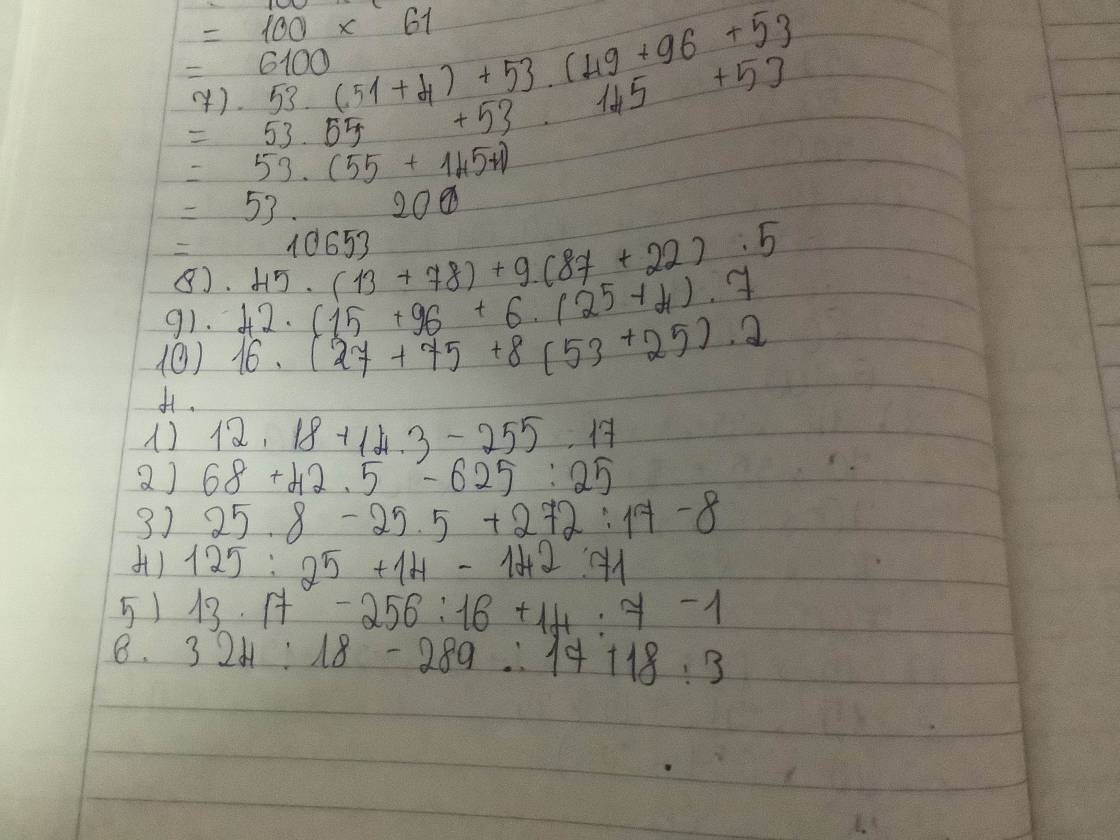 = 100 × 61
= 6100
7). 53. (51 + 4) + 53. (49 + 96 + 53
= 53. 55 + 53 . 145 + 53
= 53. (55 + 145+1)
= 53. 201
= 10653
8). 45. (13 + 78) + 9.(87 + 22) : 5
9). 42. (15 + 96 + 6. (25 + 4) . 7
10) 16. (27 + 75 + 8 (53 + 25) . 2
4.
1) 12. 18 + 14.3 - 255 : 17
2) 68 + 42.5 - 625 : 25
3) 25.8 - 25.5 + 272 : 17 - 8
4) 125 : 25 + 14 - 142 : 71
5) 13.17 - 256 : 16 + 14 : 7 - 1
6. 324 : 18 - 289 : 17 + 18 : 3